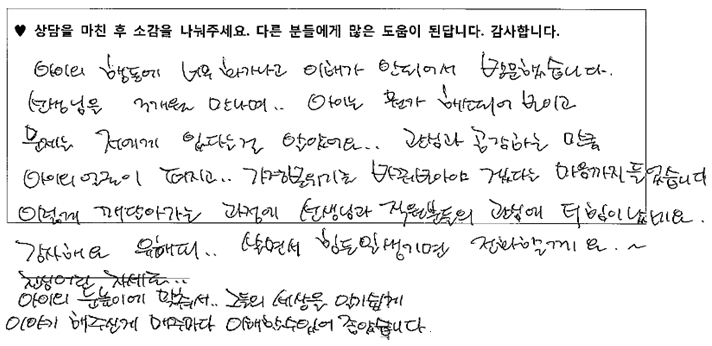 ♥ 상담을 마친 후 소감을 나눠주세요. 다른 분들에게 많은 도움이 된답니다. 감사합니다.
아이의 행동에 너무 화가나고 이해가 안되어서 방문했습니다.
선생님을 개월 만나며.. 아이는 뭔가 해 보이고
문제는 저에게 있다는걸 알았어요.. 관심과 공감하는 만큼
아이의 얼굴이 펴지고.. 가정분위기를 바꿔보아야 겠다는 마음까지 들었습니다
이렇게 깨달아가는 과정에 선생님과 직원분들의 관심에 더 힘이 났네요.
감사해요 유해피.. 살면서 힘든일생기면 전화할께요.~
진심어린 자세로...
아이의 눈높이에 맞춰서.. 그들의 세상을 알기쉽게
이야기 해주신게 매주마다 이해할수있어 좋았습니다.